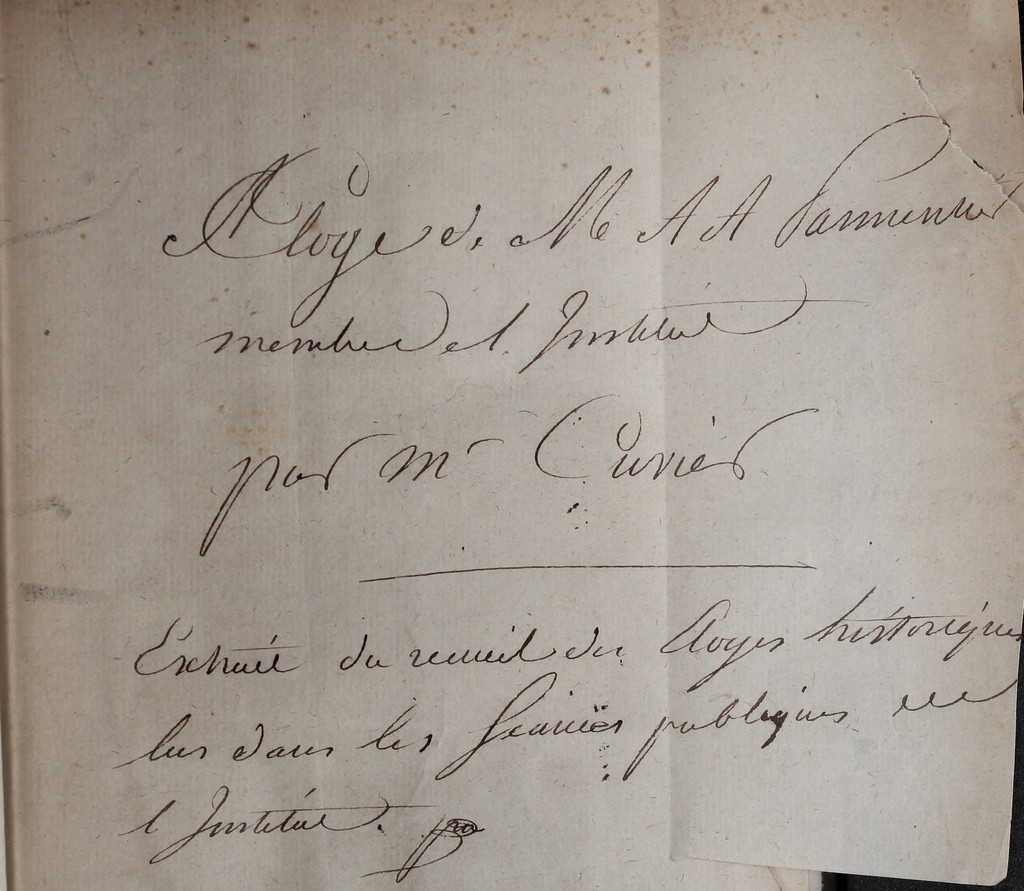 Eloge de M A A Parmentier
membre de l. Institut
par Mr Cuvier
Extrait du recueil des Eloges historiques
lus dans les Séances publiques de
l Institut.